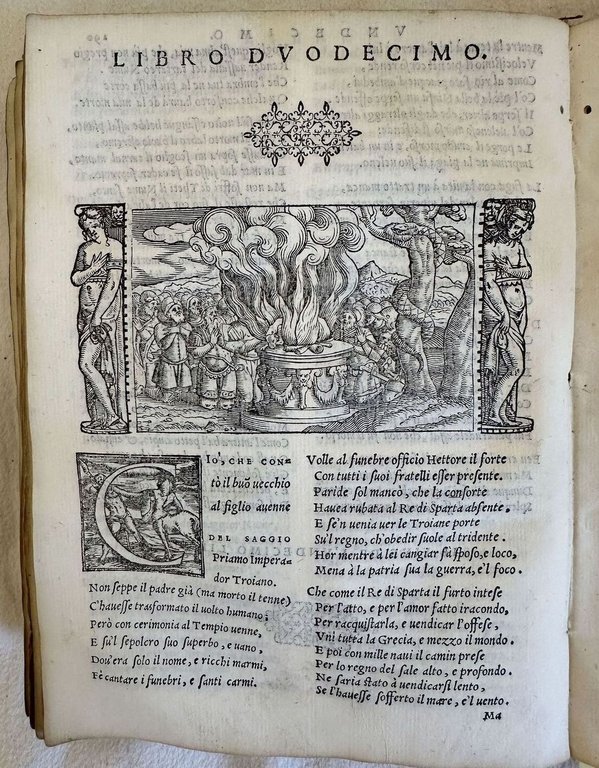 LIBRO DVODECIMO.
CIO', CHE CON=
tò il buõ uecchio
al figlio auenne
DEL SAGGIO
Priamo Impera=
dor Troiano.
Non seppe il padre già (ma morto il tenne)
C'hauesse trasformato il uolto humano;
Però con cerimonia al Tempio uenne,
E sù'l sepolcro suo superbo, e uano,
Dou'era solo il nome, e ricchi marmi,
Fè cantare i funebri, e santi carmi.
Volle al funebre officio Hettore il forte
Con tutti i suoi fratelli esser presente.
Paride sol mancò, che la consorte
Hauea rubata al Re di Sparta absente.
E se'n uenia uer le Troiane porte
Su'l regno, ch'obedir suole al tridente.
Hor mentre à lei cangiar fà sposo, e loco,
Mena à la patria sua la guerra, e'l foco.
Che come il Re di Sparta il furto intese
Per l'atto, e per l'amor fatto iracondo,
Per racquistarla, e uendicar l'offese,
Vnì tutta la Grecia, e mezzo il mondo.
E poi con mille naui il camin prese
Per lo regno del sale alto, e profondo.
Ne saria stato à uendicarsi lento,
Se l'hauesse sofferto il mare, e'l uento.
Ma